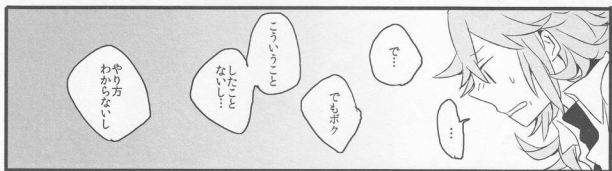 …
で…
でもボク
こういうこと
したこと
ないし…
やり方
わからないし